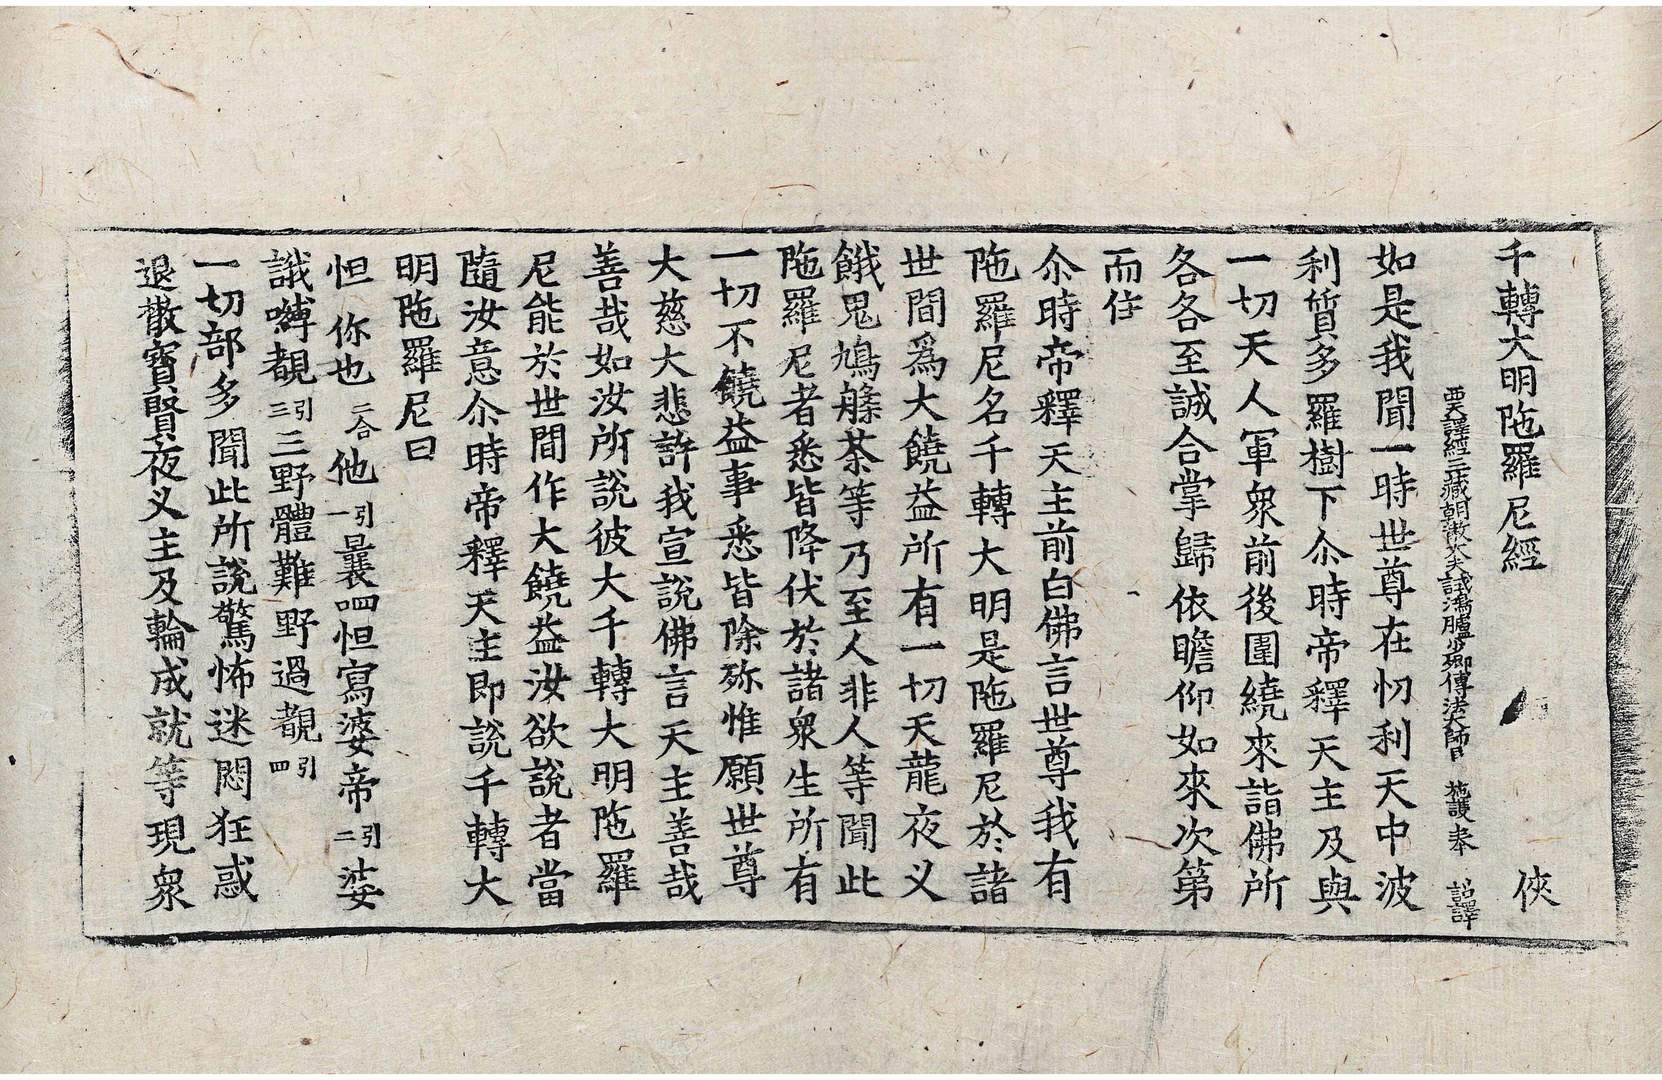 千轉大明陁羅尼經 俠
西天譯經三藏朝散大夫試鴻臚少卿傳法大師臣 施護奉 詔譯
如是我聞一時世尊在忉利天中波
利質多羅樹下尒時帝釋天主及與
一切天人軍衆前後圍繞來詣佛所
各各至誠合掌歸依瞻仰如來次第
而住
尒時帝釋天主前白佛言世尊我有
陁羅尼名千轉大明是陁羅尼於諸
世間爲大饒益所有一切天龍夜叉
餓鬼鳩槃茶等乃至人非人等聞此
陁羅尼者悉皆降伏於諸衆生所有
一切不饒益事悉皆除殄惟願世尊
大慈大悲許我宣說佛言天主善哉
善哉如汝所說彼大千轉大明陁羅
尼能於世間作大饒益汝欲說者當
隨汝意尒時帝釋天主即說千轉大
明陁羅尼曰
怛你也二合他引一曩莫呬怛寫婆帝引二娑
誐嚩覩引三三野體難野過覩引四
一切部多聞此所說驚怖迷悶狂惑
退散寶賢夜叉主及輪成就等現衆